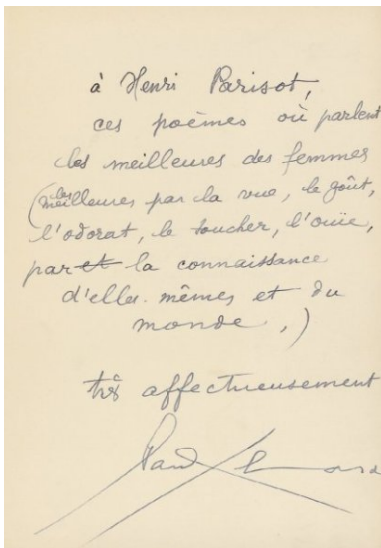 à Henri Parisot,
ces poèmes où parlent
les meilleures des femmes
(les meilleures par la vue, le goût,
l'odorat, le toucher, l'ouïe,
par et la connaissance
d'elles-mêmes et du
monde.)
très affectueusement
Paul Eluard